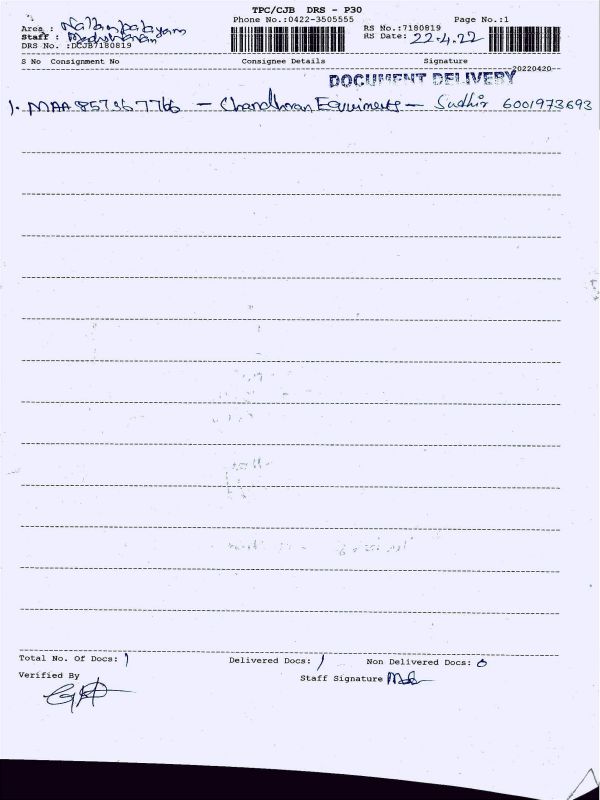 TPC/CJB DRS - P30
Phone No.:0422-3505555 Page No.:1
Area : Nallampalayam RS No.:7180819
Staff : RS Date: 22.4.22
DRS No. :DCJB7180819
S No Consignment No Consignee Details Signature
20220420
DOCUMENT DELIVERY
1. MAA 857367766 - Chandhran - Sudhir 6001973693
Total No. Of Docs: 1 Delivered Docs: 1 Non Delivered Docs: 0
Verified By
Staff Signature